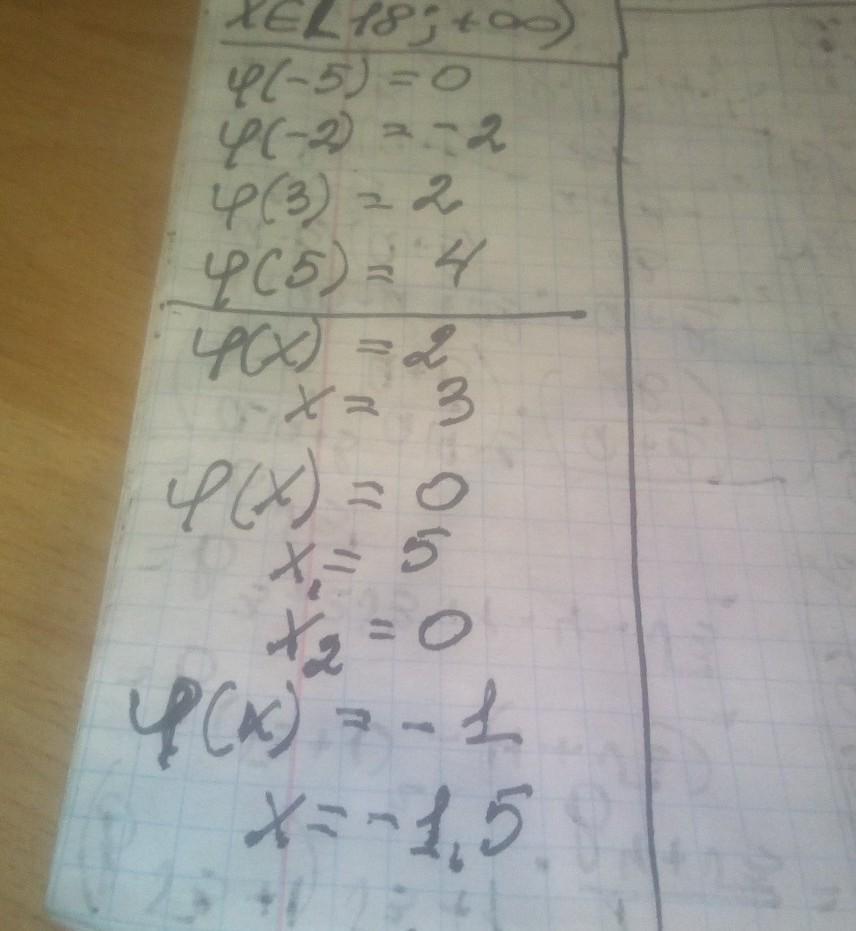 x∈[18;+∞)
φ(-5) = 0
φ(-2) = -2
φ(3) = 2
φ(5) = 4
φ(x) = 2
x = 3
φ(x) = 0
x₁ = 5
x₂ = 0
φ(x) = -1
x = -1,5